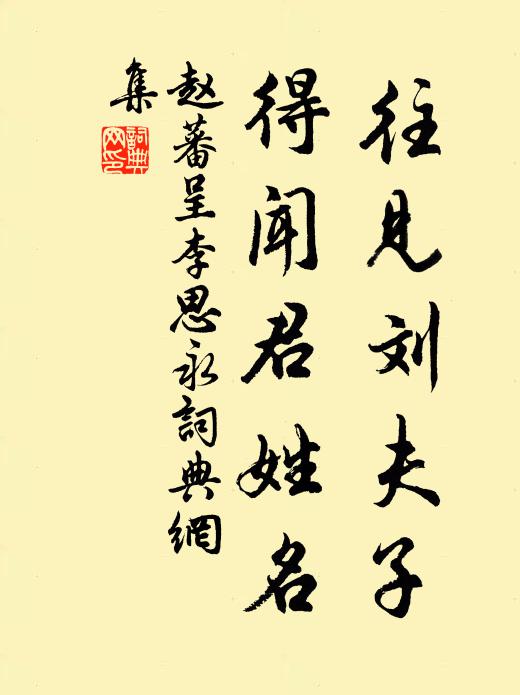 往见刘夫子
得闻君姓名
赵蕃呈李思永詞典網
集
詞典
网印